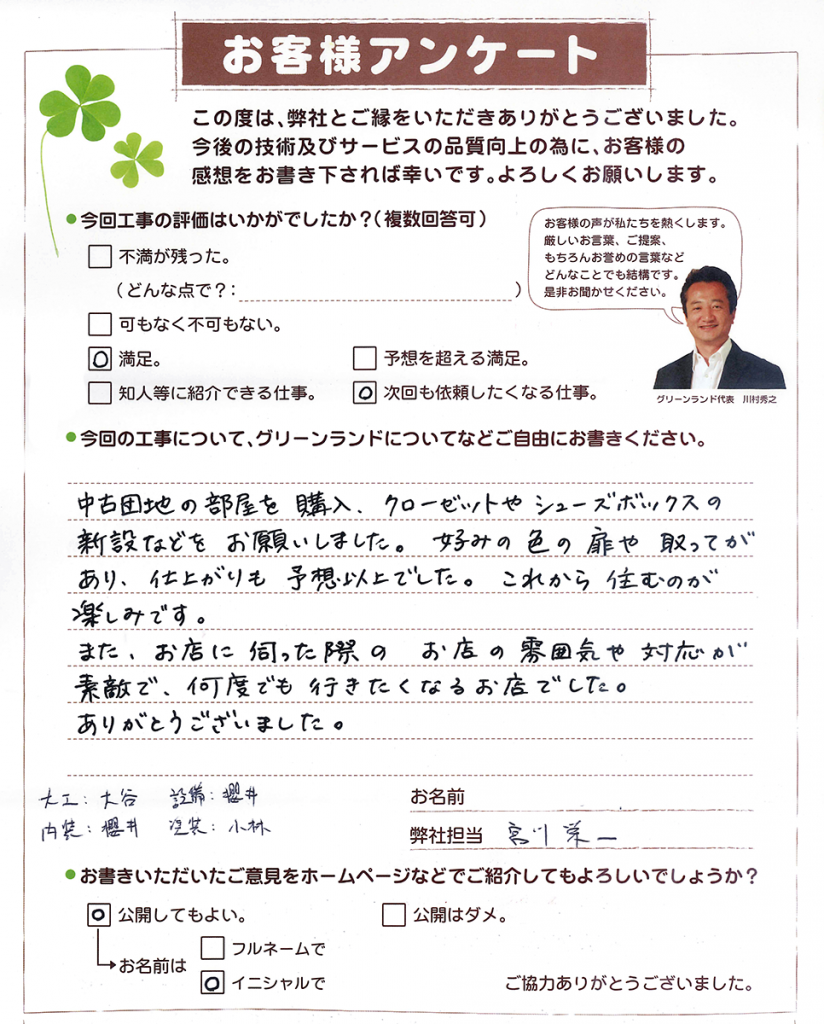 お客様アンケート
この度は、弊社とご縁をいただきありがとうございました。
今後の技術及びサービスの品質向上の為に、お客様の
感想をお書き下されば幸いです。よろしくお願いします。
●今回工事の評価はいかがでしたか？（複数回答可）
不満が残った。
（どんな点で？： ）
可もなく不可もない。
満足。 予想を超える満足。
知人等に紹介できる仕事。 次回も依頼したくなる仕事。
お客様の声が私たちを熱くします。
厳しいお言葉、ご提案、
もちろんお誉めの言葉など
どんなことでも結構です。
是非お聞かせください。
グリーンランド代表 川村秀之
●今回の工事について、グリーンランドについてなどご自由にお書きください。
中古団地の部屋を 購入、クローゼットや シューズボックスの
新設などを お願いしました。 好みの 色の 扉や 取ってが
あり、仕上がりも 予想以上でした。 これから 住むのが
楽しみです。
また、お店に 伺った際の お店の 雰囲気や 対応が
素敵で、何度でも 行きたくなるお店でした。
ありがとうございました。
大工：大谷 設備：櫻井
内装：櫻井 塗装：小林
お名前
弊社担当 宮川 栄一
●お書きいただいたご意見をホームページなどでご紹介してもよろしいでしょうか？
公開してもよい。 公開はダメ。
お名前は
フルネームで
イニシャルで
ご協力ありがとうございました。